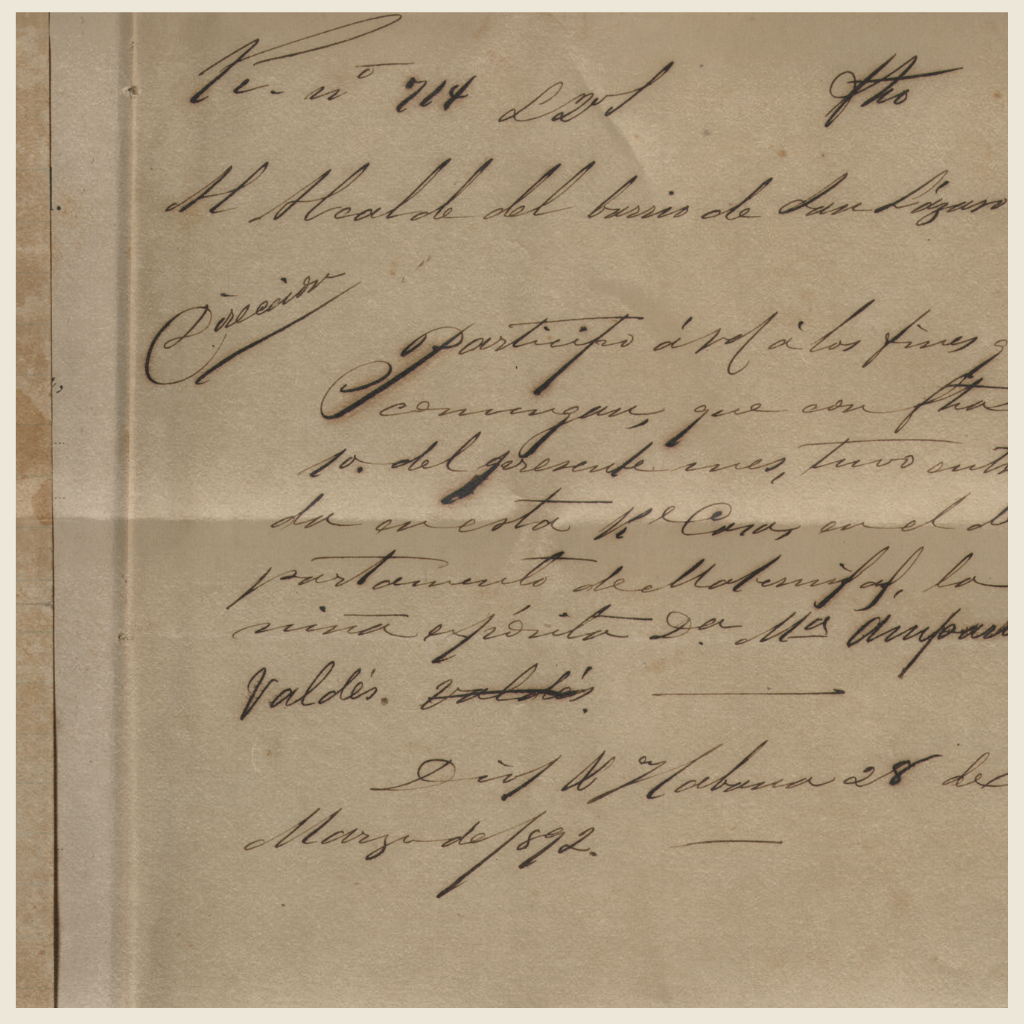 nº 714 fho
Al Alcalde del barrio de San Lázaro
Dirección
Participo á Vd á los fines q
convengan, que con fha
10. del presente mes, tuvo entr
da en esta Rl Casa, en el d
partamento de Maternidad, la
niña expósita Da. Ma Ampar
Valdés. Valdés.
Habana 28 de
Marzo de 1892.